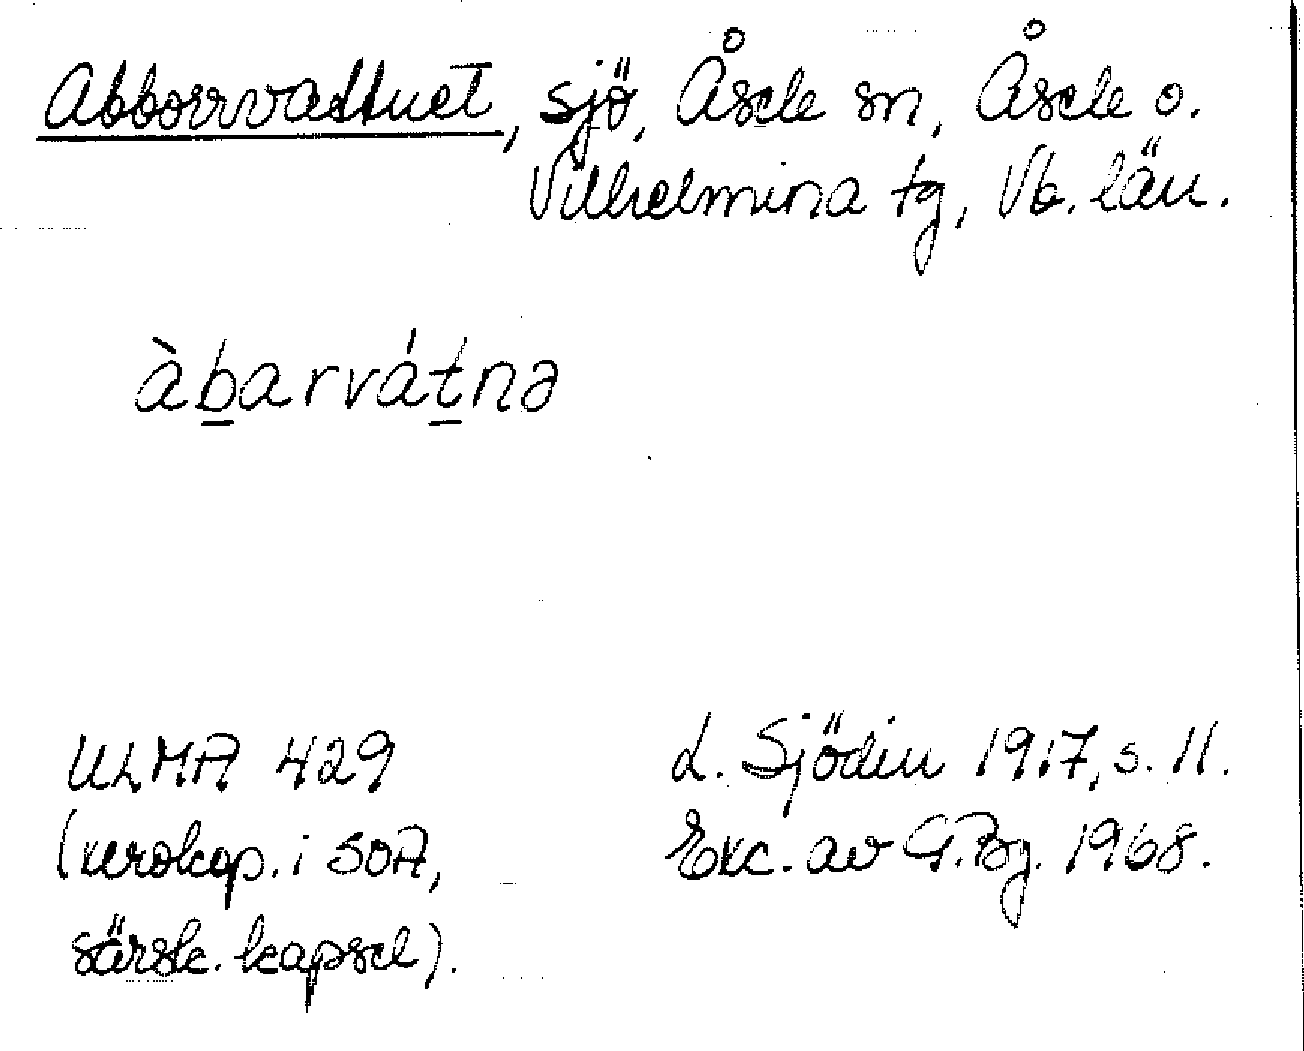 Abborrvattnet, sjö, Åsele sn, Åsele o.
Vilhelmina tg, Vb. län.
àb̲arvát̲nə
ULMA 429
(xerokop. i SOA,
särsk. kapsel).
L. Sjödin 1917, s. 11.
Exc. av G.Bg. 1968.